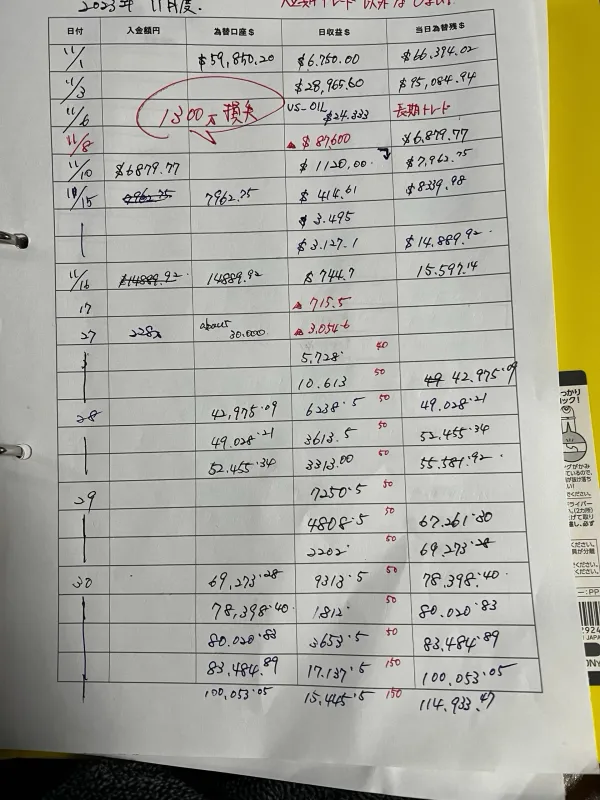 2023年 11月度.
日付 入金額円 為替口座$ 日収益$ 当日為替残$
11/1 $59,850.20 $6.750.00 $66.394.02
11/3 $28,965.60 $95,084.94
11/6 US-OIL $24.333 長期トレード
1300万 損失
11/8 ▲ $87600 $6.879.77
11/10 $6879.77 $1120.00. $7,962.75
10/15 7962.75 7962.75 $414.61 $8339.98
$3.495
$3.127.1 $14.889.92
11/16 $14889.92 14889.92 $744.7 15.597.14
17 ▲ 715.5
27 228万 30.000 ▲ 3.054.6
5.728. 40
10.613 50 49 42.975.09
28 42,975.09 6238.5 50 49.028.21
49.028.21 3613.5 50 52.455.34
52.455.34 3313.00 50 55.581.92
29 7250.5 50
4808.5 50 67.261.30
2202. 50 69.273.28
30 69,273.28 9313.5 50 78.398.40
78,398.40 1.812. 50 80.020.83
80.020.83 3653.5 50 83.484.89
83.484.89 17.137.5 150 100.053.05
100.053.05 15.445.5 150 114.933.47